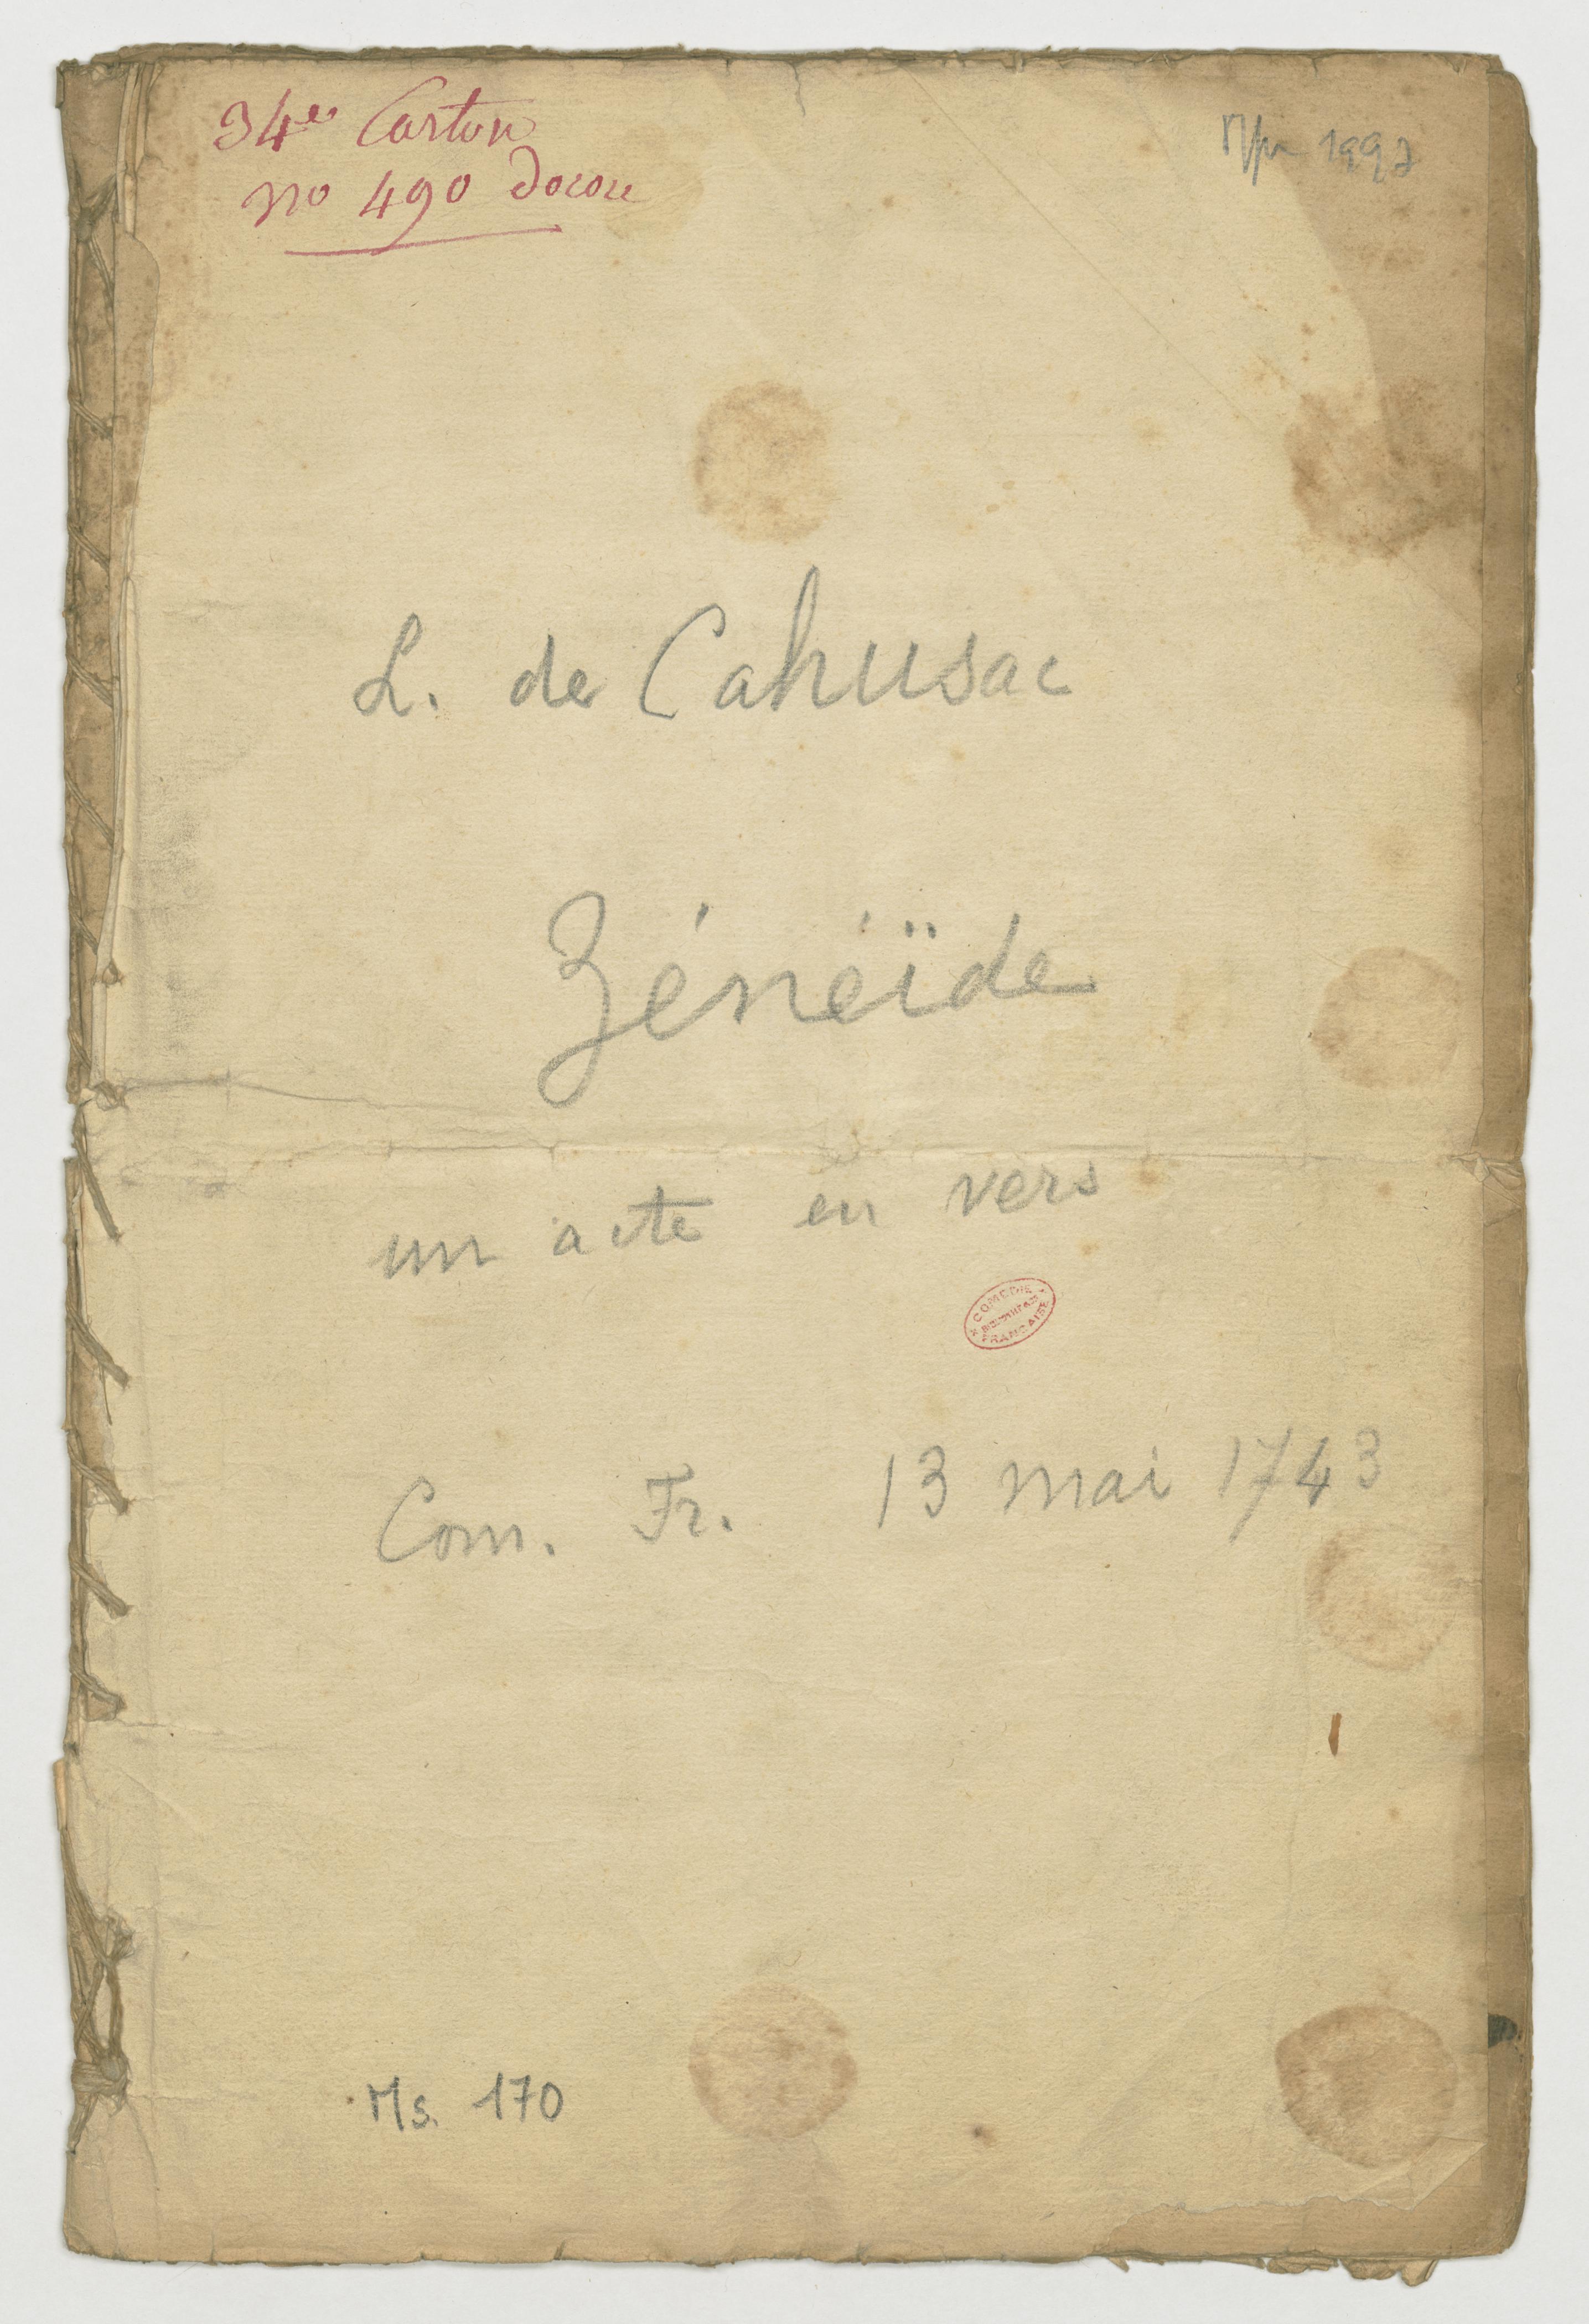 34e Carton
no 490
1992
L. de Cahusac
Zénéïde
un acte en vers
COMÉDIE
FRANÇAISE
Com. Fr. 13 mai 1743
Ms. 170